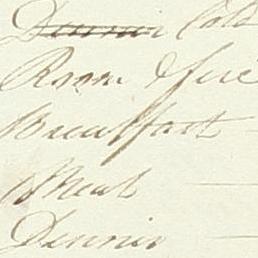 Dinner Cold
Room & fire
Breakfast
Meat
Dinner